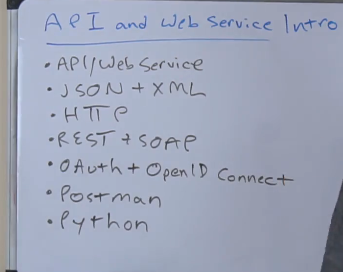 API and Web Service Intro
• API/Web Service
• JSON + XML
• HTTP
• REST + SOAP
• OAuth + OpenID Connect
• Postman
• Python